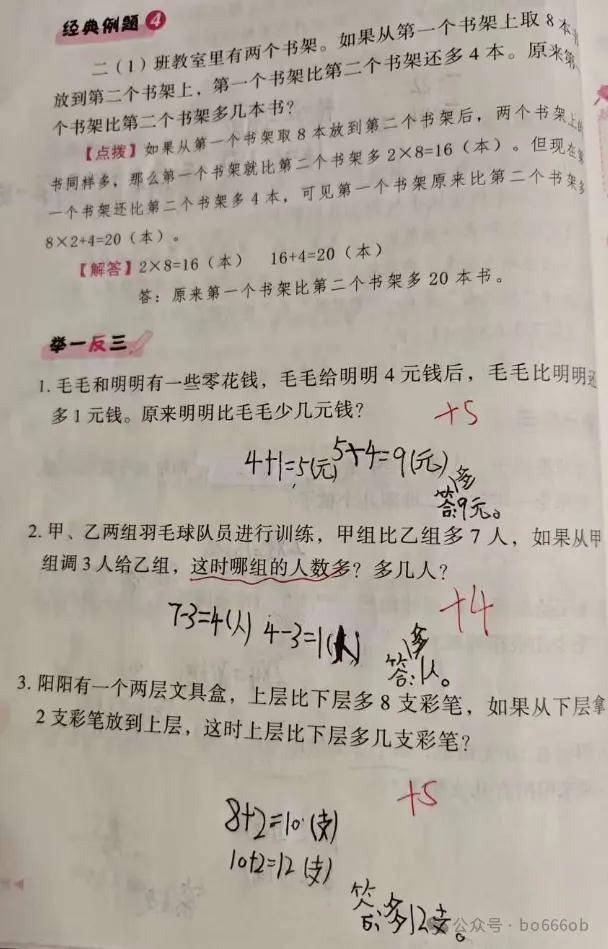 经典例题 4
二（1）班教室里有两个书架。如果从第一个书架上取 8 本
放到第二个书架上，第一个书架比第二个书架还多 4 本。原来第
个书架比第二个书架多几本书？
【点拨】如果从第一个书架取 8 本放到第二个书架后，两个书架上的
书同样多，那么第一个书架就比第二个书架多 2×8=16（本）。但现在第
一个书架还比第二个书架多 4 本，可见第一个书架原来比第二个书架多
8×2+4=20（本）。
【解答】2×8=16（本） 16+4=20（本）
答：原来第一个书架比第二个书架多 20 本书。
举一反三
1. 毛毛和明明有一些零花钱，毛毛给明明 4 元钱后，毛毛比明明还
多 1 元钱。原来明明比毛毛少几元钱？
+5
4+1=5(元) 5+4=9(元)
答:9元。
2. 甲、乙两组羽毛球队员进行训练，甲组比乙组多 7 人，如果从甲
组调 3 人给乙组，这时哪组的人数多？多几人？
+4
7-3=4(人) 4-3=1(人)
多
答:1人。
3. 阳阳有一个两层文具盒，上层比下层多 8 支彩笔，如果从下层拿
2 支彩笔放到上层，这时上层比下层多几支彩笔？
+5
8+2=10(支)
10+2=12(支)
答:多12支。
公众号·bo666ob